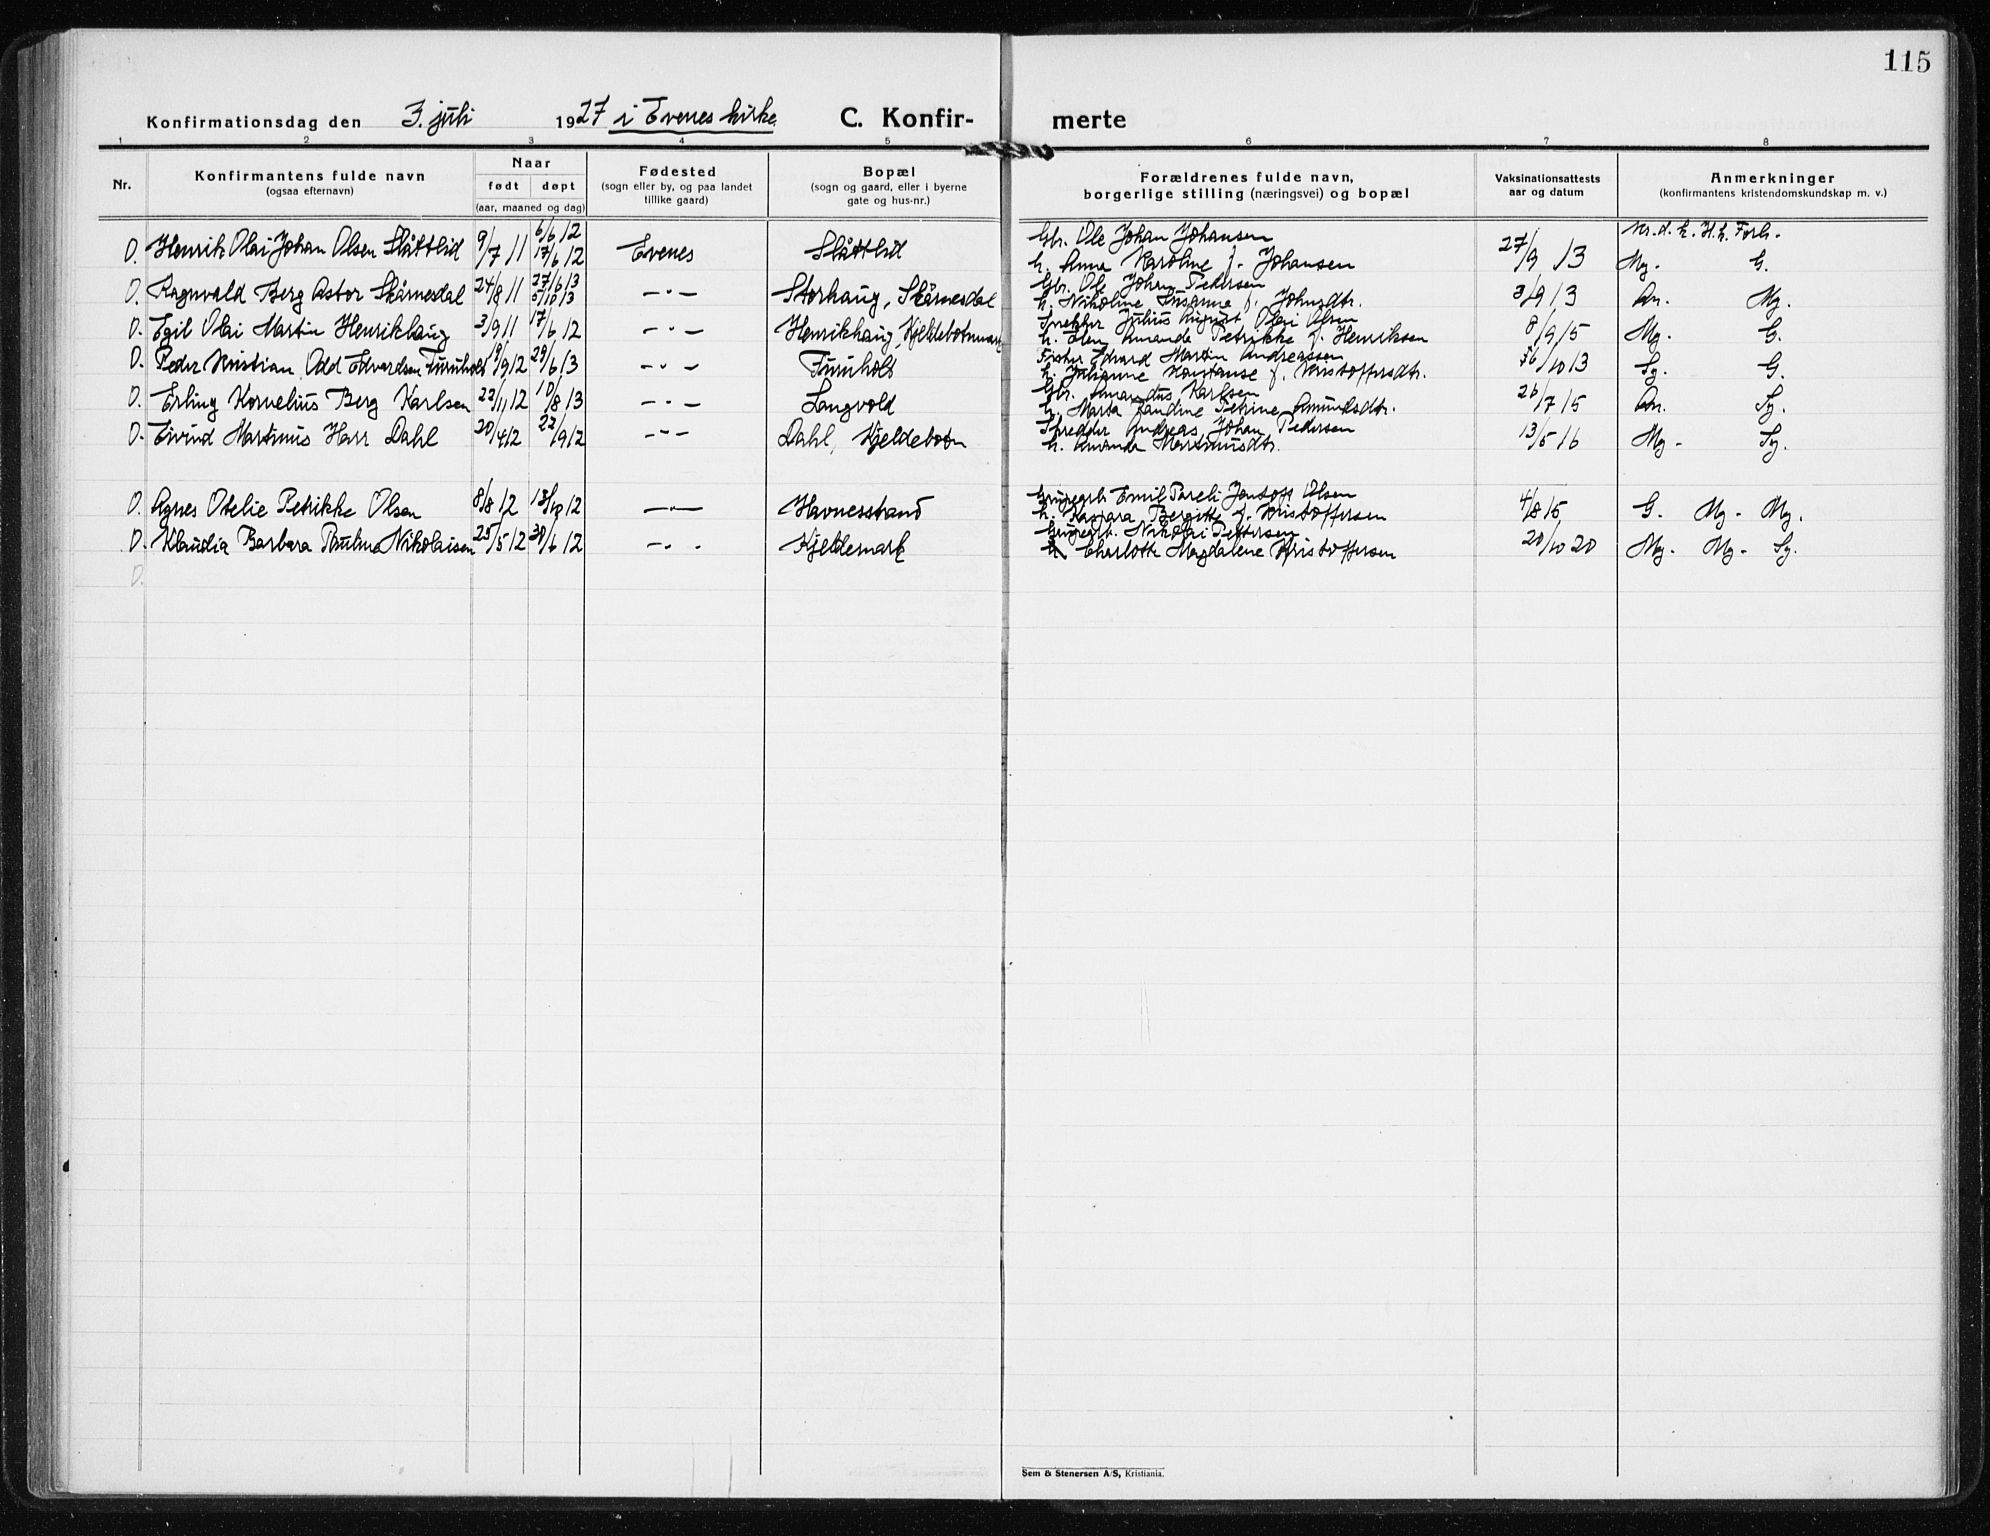 115
Konfirmationsdag den 3. juli 1927 i Evenes kirke. C. Konfir- merte
1 2 3 4 5 6 7 8
Nr. Konfirmantens fulde navn (ogsaa efternavn) Naar født døpt (aar, maaned og dag) Fødested (sogn eller by, og paa landet tillike gaard) Bopæl (sogn og gaard, eller i byerne gate og hus-nr.) Forældrenes fulde navn, borgerlige stilling (næringsvei) og bopæl Vaksinationsattests aar og datum Anmerkninger (konfirmantens kristendomskundskap m. v.)
6/6 12 Gbr. Ole Johan Johansen Kr.d.k. H.h. Forh.
D. Henrik Olai Johan Olsen Slåttlid 9/7 11 17/6 12 Evenes Slåttlid h. Anna Karoline f. Johansen 27/9 13 Mg. G.
27/6 13 Gbr. Ole Johan Pedersen
D. Ragnvald Berg Astor Skårnesdal 24/8 11 5/10 13 -"- Storhaug, Skårnesdal h. Nikoline Susanne f. Johnsdtr. 3/9 13 An. Mg.
Snekker Julius August Olai Olsen
D. Egil Olai Martin Henrikhaug 3/9 11 17/6 12 -"- Henrikhaug, Kjeldebotnmark h. Elen Amanda Petrikke f. Henriksen 8/9 15 Mg. G.
Fisker Edvard Martin Andreassen
D. Peder Kristian Odd Edvardsen Furuholt 19/9 12 29/6 13 -"- Furuholt h. Julianne Konstanse f. Kristoffersdtr. 26/10 13 Sg. G.
Gbr. Amandus Karlsen
D. Erling Kornelius Berg Karlsen 22/11 12 10/8 13 -"- Langvold h. Marta Amundsdtr. 26/7 15 An. Sg.
Andreas Johan Pedersen
D. Eivind Martinus Harr Dahl 20/4 12 22/9 12 -"- Dahl, Kjeldebotn h. Amanda Martinusdtr. 13/5 16 Mg. Sg.
Emil Pareli Olsen
D. Agnes Otelie Petrikke Olsen 8/8 12 13/10 12 -"- Havnesstrand h. Bergitte f. Kristoffersen 4/8 15 G. Mg. Mg.
Nikolai Pettersen
D. Klaudia Barbara Pauline Nikolaisen 25/5 12 30/6 12 -"- Kjeldemark h. Charlotte Magdalene Kristoffersen 20/10 20 Mg. Mg. Sg.
D.
Sem & Stenersen A/S, Kristiania.